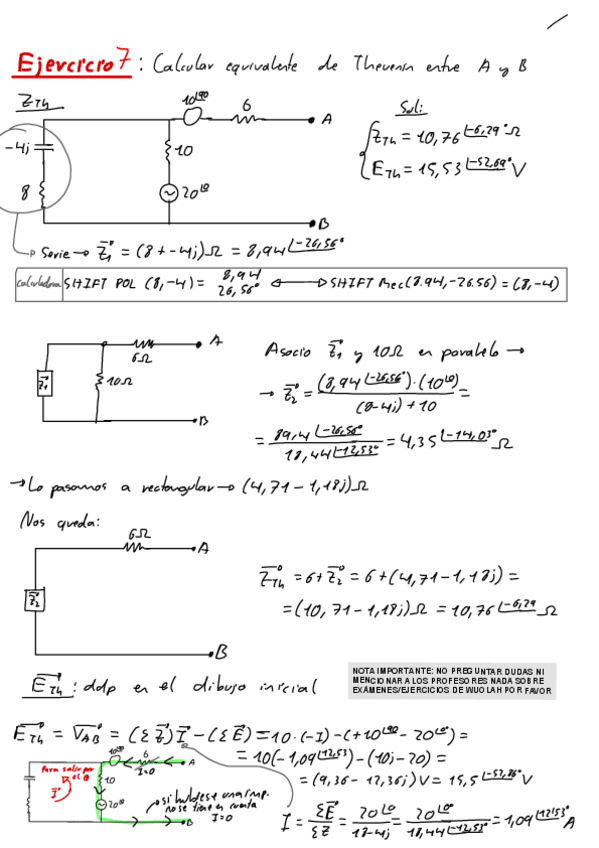 Ejercicio 7 : Calcular equivalente de Thevenin entre A y B
Z_Th
10∠90
6
A
-4j
10
8
20∠0
B
Sol:
Z_Th = 10,76∠-6,29° Ω
E_Th = 15,53∠-52,69° V
Serie → Z₁ = (8+-4j)Ω = 8,94∠-26,56°
Calculadora SHIFT POL (8,-4) = 8,94 26,56° ⟷ SHIFT Rec(8.94,-26.56) = (8,-4)
A
6Ω
Z₁
10Ω
B
Asocio Z₁ y 10Ω en paralelo →
→ Z₂ = (8,94∠-26,56°)·(10∠0) / (8-4j)+10 =
= 89,4∠-26,56° / 18,44∠-12,53° = 4,35∠-14,03° Ω
→ Lo pasamos a rectangular → (4,71-1,18j)Ω
Nos queda:
6Ω
A
Z₂
B
Z_Th = 6+Z₂ = 6+(4,71-1,18j) =
= (10,71-1,18j)Ω = 10,76∠-6,29 Ω
NOTA IMPORTANTE: NO PREGUNTAR DUDAS NI
MENCIONAR A LOS PROFESORES NADA SOBRE
EXÁMENES/EJERCICIOS DE WUOLAH POR FAVOR
E_Th : ddp en el dibujo inicial
E_Th = V_AB = (Σ Z)I - (Σ E) = 10·(-I) - (+10∠90 - 20∠0) =
= 10(-1,09∠12,53) - (10j-20) =
= (9,36-12,36j)V = 15,5∠-52,86° V
10∠90
6
I=0
A
Para salir por el ⊕
I
10
20∠0
si hubiese una imp.
no se tiene en cuenta
I=0
B
I = ΣE/ΣZ = 20∠0 / 18-4j = 20∠0 / 18,44∠-12,53° = 1,09∠12,53° A